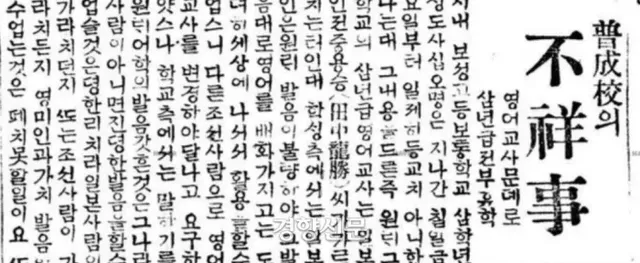 普成校의
不祥事
영어교사문뎨로
삼년급전부휴학
시내 보성고등보통학교 삼학년
생도사십오명은 지나간 칠일월
요일부터 일제히등교치 아니한
다는대 그내용을드른즉 원뎌그
학교의 삼년급영어교사는 일본
인뎐중용승(田中龍勝)씨가가르
치는터인대 학생측에서는 일본
인은원뎌 발음이불량하야 그발
음대로영어를 배화가지고는 도
뎌히세상에 나서서 활용할수
업스니 다른조선사람으로 영어
교사를 변경하야달나고 요구하
얏스나 학교측에서는 말하기를
원뎌어학의발음갓흔것은그나라
사람이아니면진뎡한발음을할수
업슬것은뎡한리치라일본사람이
가라치던지 또는조선사람이 가
라치든지 영미인과가치 발음
수업는것은 폐치못할일이요 또
경향신문